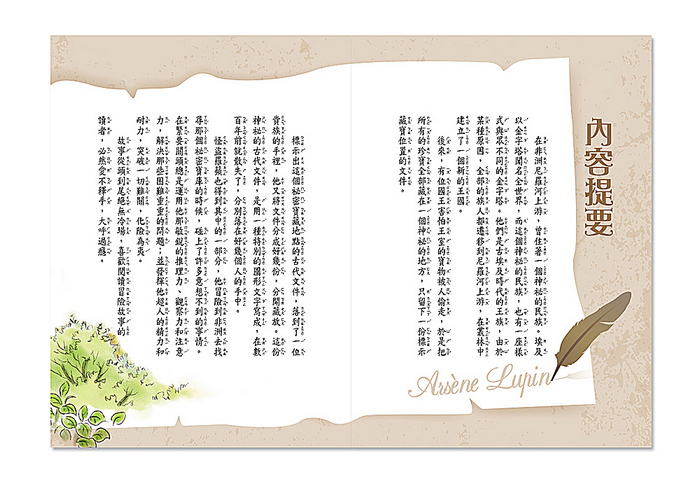 內容提要
在非洲尼羅河上游，曾住著一個神祕的民族。埃及
以金字塔聞名全世界，而這個神祕的民族，也有一座樣
式與眾不同的金字塔。他們是古埃及時代的王族，由於
某種原因，全部的族人都遷移到尼羅河上游，在叢林中
建立了一個新的王國。
後來，有位國王害怕王室的寶物被人偷走，於是把
所有的珍寶全部藏在一個神祕的地方，只留下一份標示
藏寶位置的文件。
標示出這個祕密寶藏地點的古代文件，落到了一位
貴族的手裡，他又將文件分成好幾份，分開藏放。這份
神祕的古代文件，是用一種特別的圖形文字寫成，在數
百年前就散失了，分別落在好幾個人的手中。
怪盜羅蘋也得到其中的一部分，他冒險到非洲去找
尋那個祕密寶庫的時候，碰上了許多意想不到的事情。
在緊要關頭總是運用他那敏銳的推理力、觀察力和注意
力，解決那些困難重重的問題；並發揮他超人的精力和
耐力，突破一切難關，化險為夷。
故事從頭到尾絕無冷場，喜歡閱讀冒險故事的
讀者，必然愛不釋手，大呼過癮。
Arsène Lupin